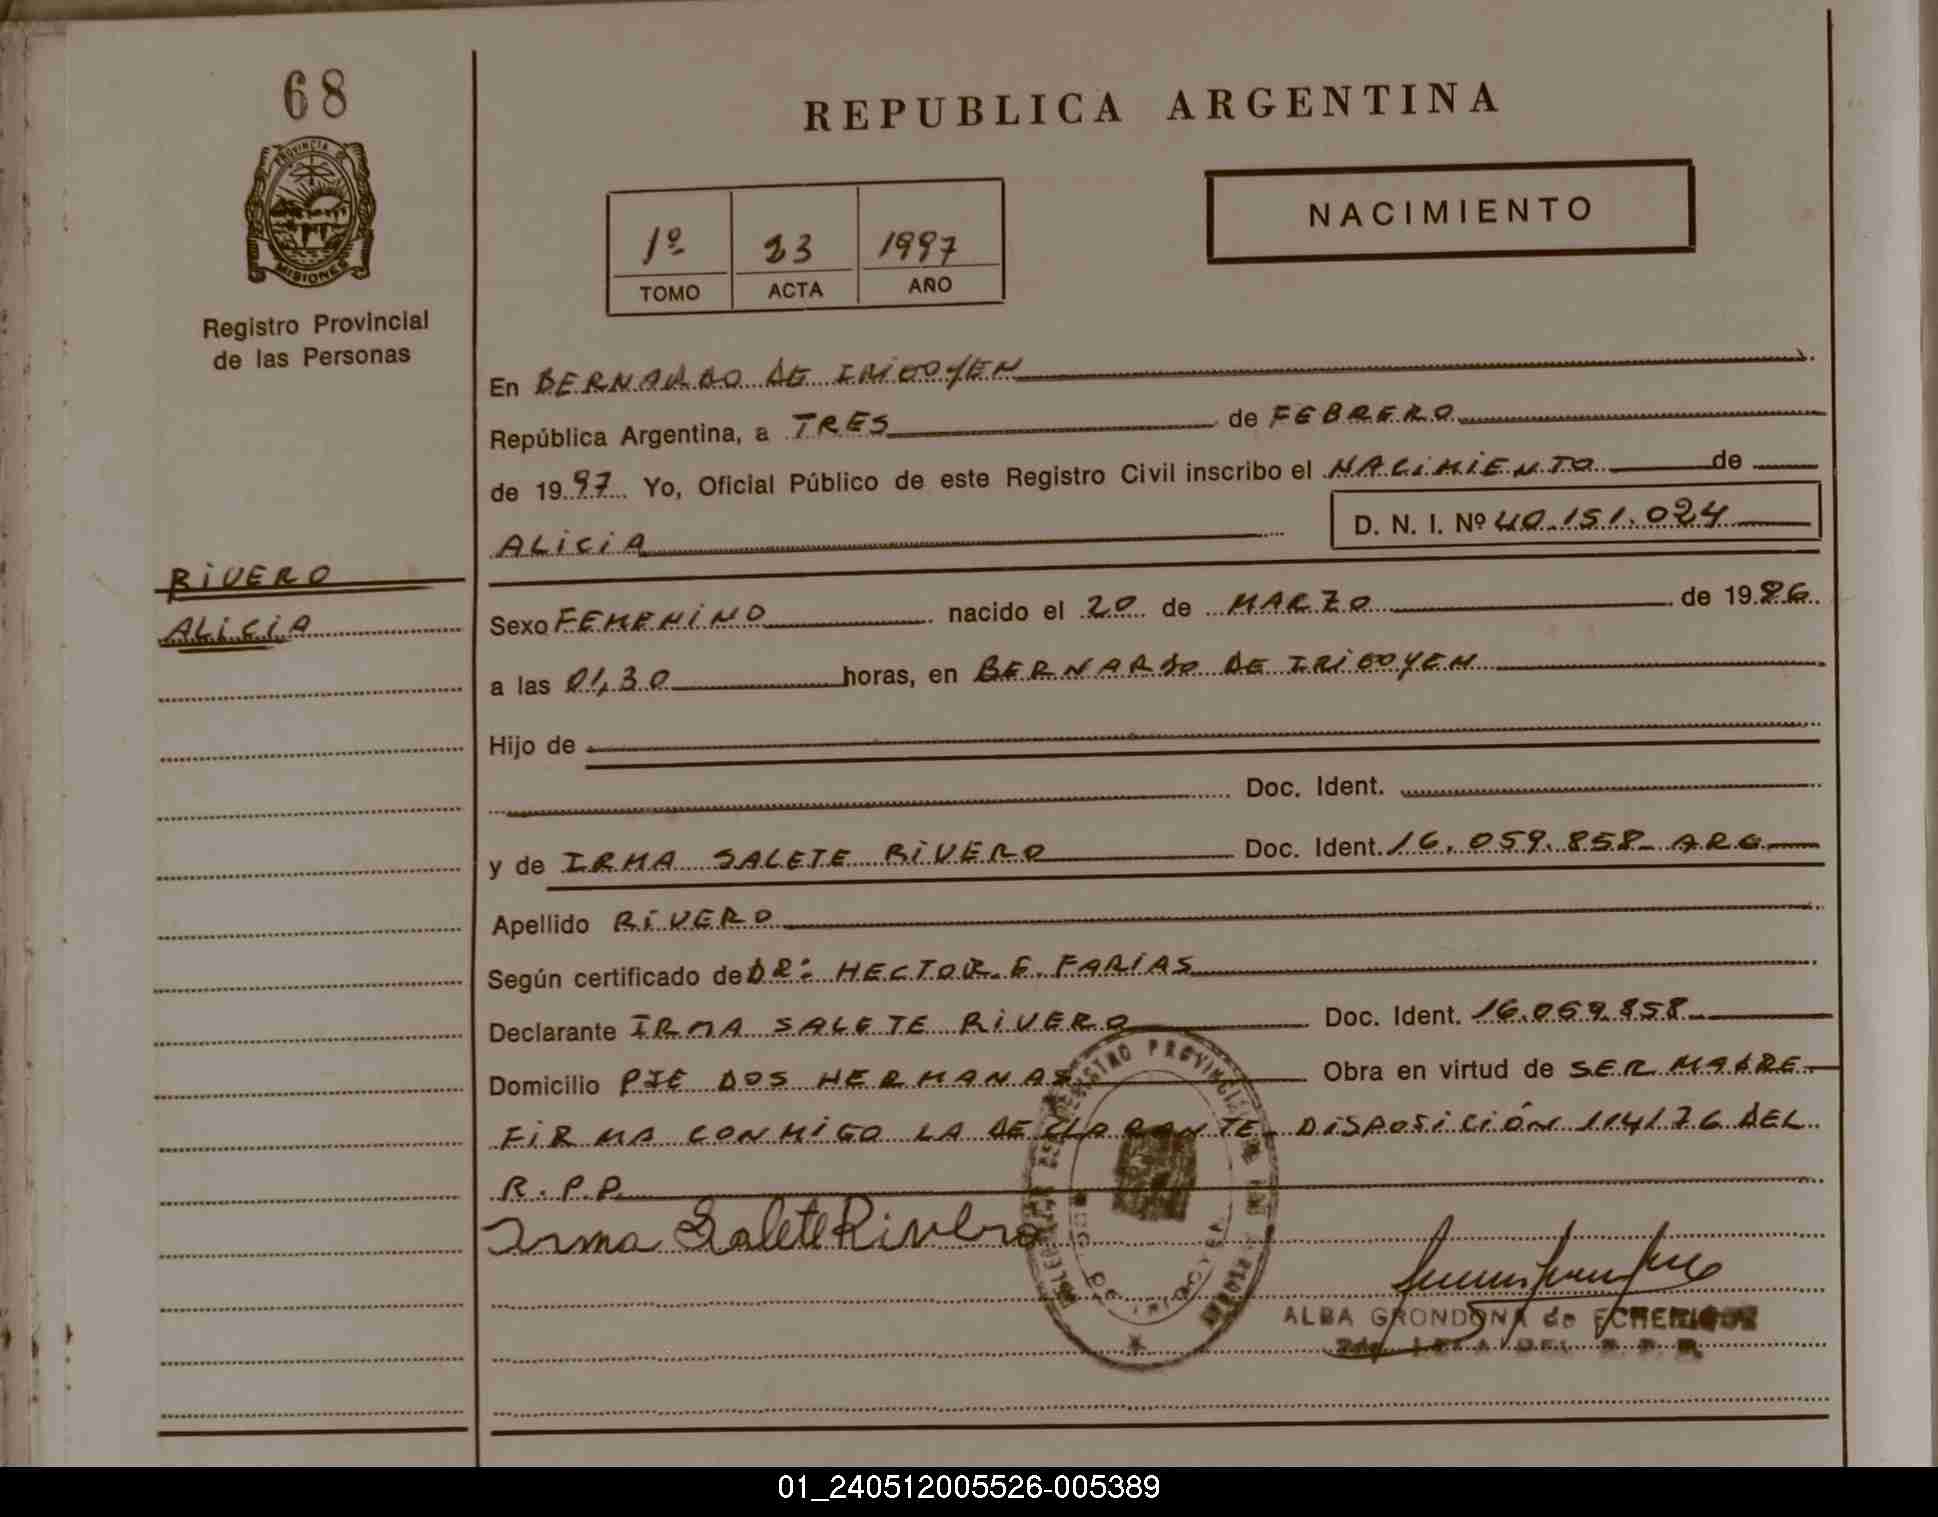 68
PROVINCIA DE
MISIONES
Registro Provincial
de las Personas
RIVERO
ALICIA
REPUBLICA ARGENTINA
1º 23 1997
TOMO ACTA AÑO
NACIMIENTO
En BERNARDO DE IRIGOYEN
República Argentina, a TRES de FEBRERO
de 1997 Yo, Oficial Público de este Registro Civil inscribo el NACIMIENTO de
ALICIA D. N. I. Nº 40.151.024
Sexo FEMENINO nacido el 20 de MARZO de 1986
a las 01,30 horas, en BERNARDO DE IRIGOYEN
Hijo de
Doc. Ident.
y de IRMA SALETE RIVERO Doc. Ident. 16.059.858- ARG
Apellido RIVERO
Según certificado de DR: HECTOR G. FARIAS
Declarante IRMA SALETE RIVERO Doc. Ident. 16.059.858
Domicilio PJE DOS HERMANAS Obra en virtud de SER MADRE
FIRMA CONMIGO LA DECLARANTE- DISPOSICIÓN 114/76 DEL
R.P.P.
Irma Salete Rivero
REGISTRO PROVINCIAL DE
DE IRIGOYEN
ALBA GRONDONA de
01_240512005526-005389